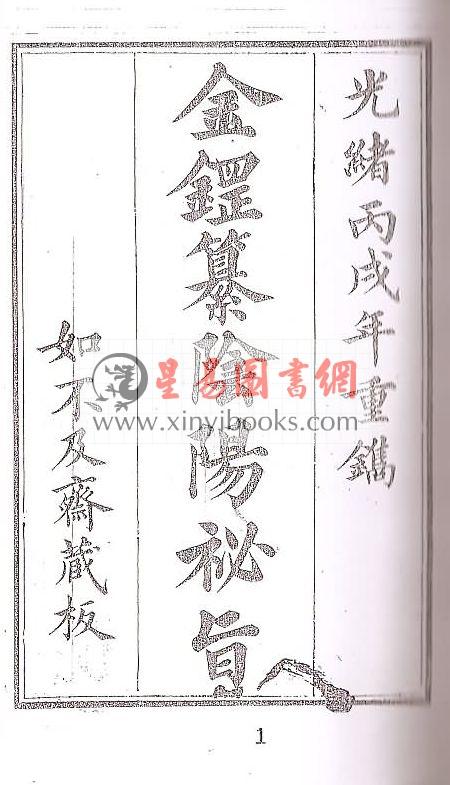 光緒丙戌年重鐫
金鍔纂陰陽祕旨
如不及齋藏板
星易圖書網
www.xinyibooks.com
1